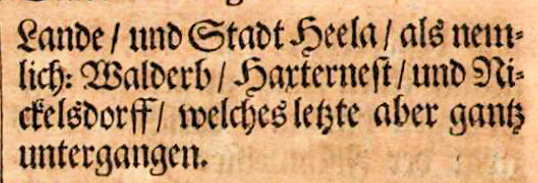 Lande / und Stadt Heela / als nem⸗
lich: Walderb / Harterneſt / und Ni⸗
ckelsdorff / welches letzte aber gantz
untergangen.